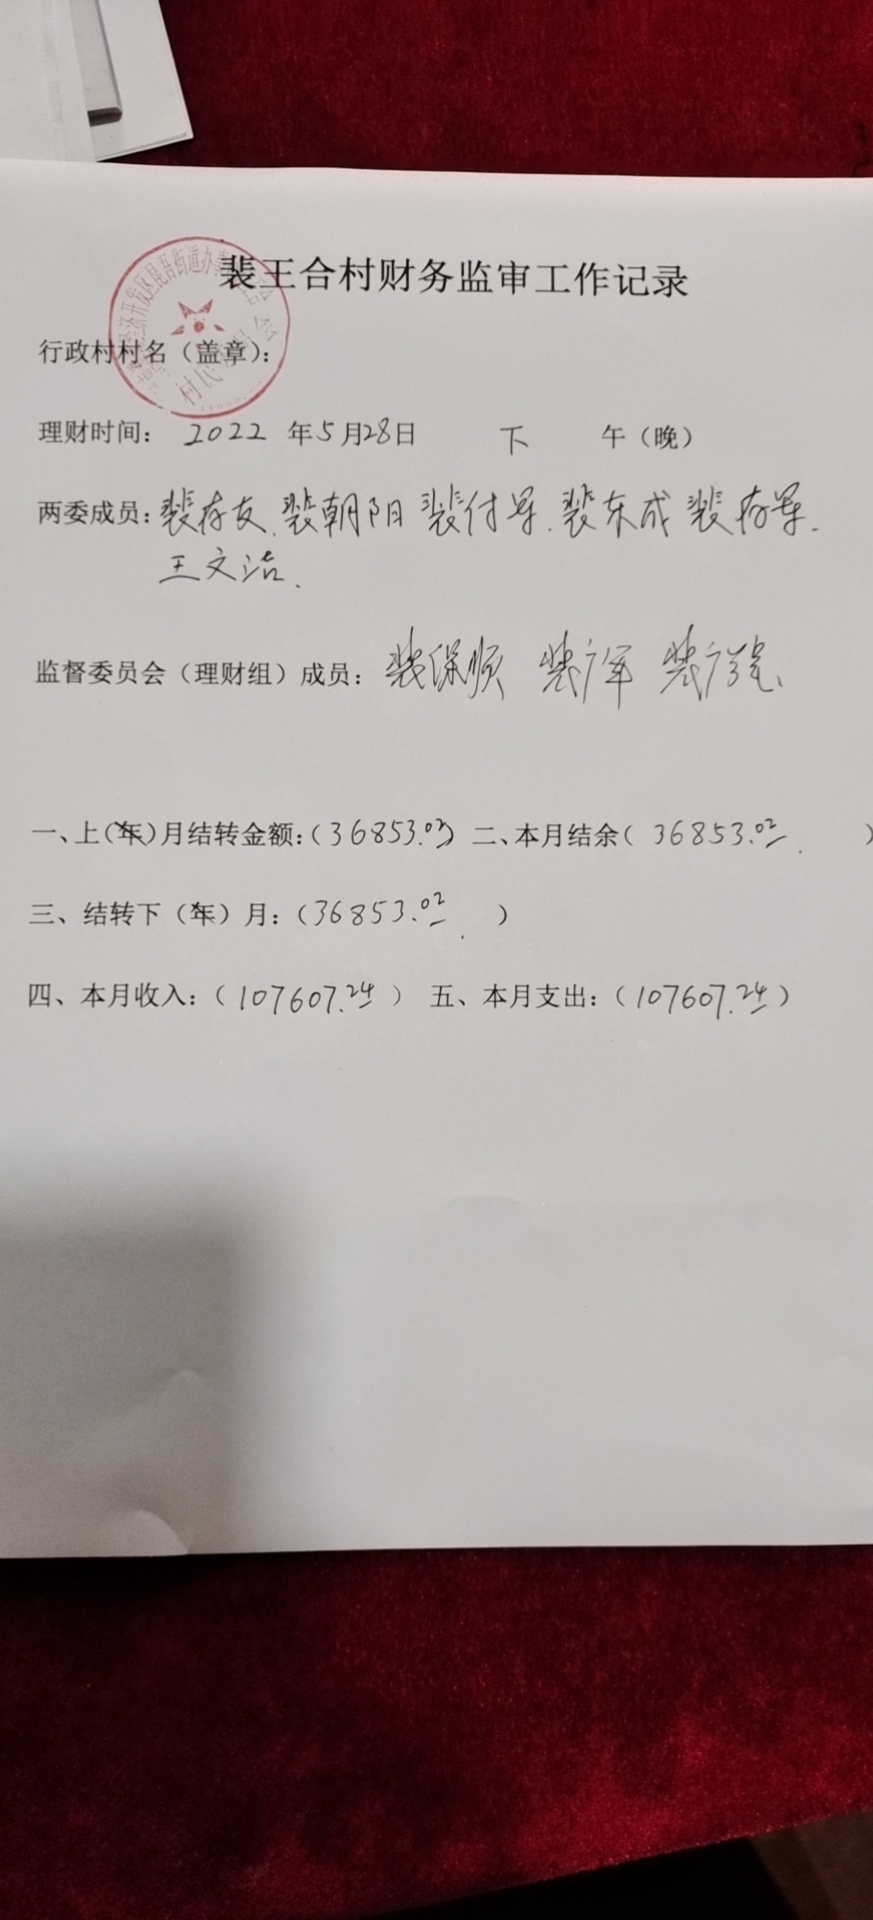 裴王合村财务监审工作记录
经济开发区昆吾街道办事
村民委员会
行政村村名（盖章）：
理财时间： 2022 年 5 月 28 日 下 午（晚）
两委成员：裴存友、裴朝阳 裴付军、裴东成 裴存军、
王文洁、
监督委员会（理财组）成员： 裴保顺 裴广军
一、上（年）月结转金额：（36853.02） 二、本月结余（ 36853.02 ）
三、结转下（年）月：（36853.02 ）
四、本月收入：（107607.24） 五、本月支出：（107607.24）